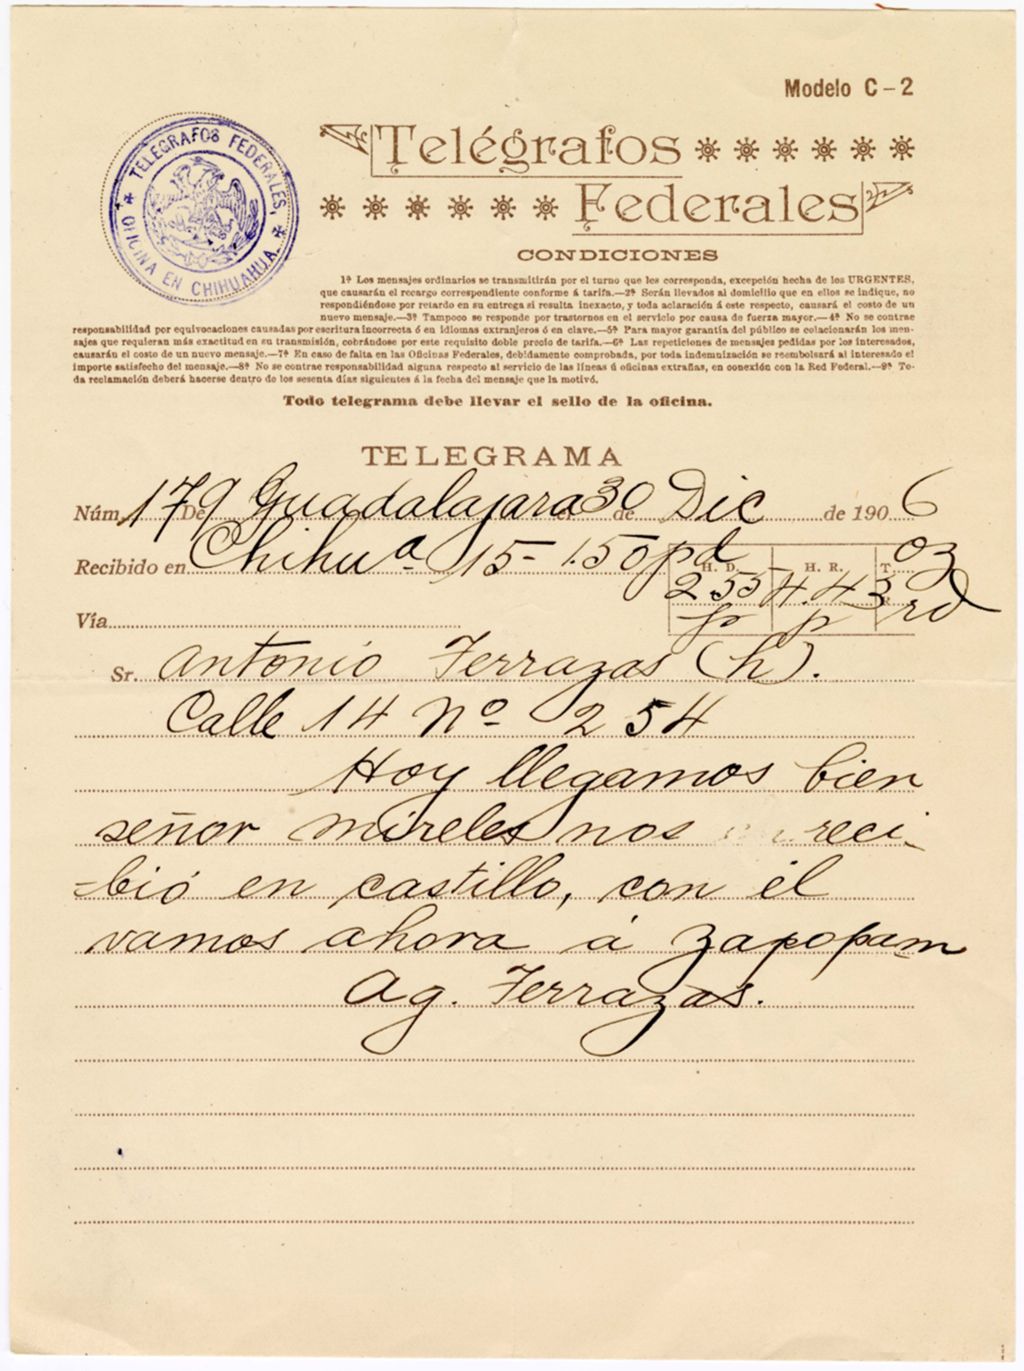 Modelo C-2
TELEGRAFOS FEDERALES,
OFICINA EN CHIHUAHUA.
Telégrafos
Federales
CONDICIONES
1ª Los mensajes ordinarios se transmitirán por el turno que les corresponda, excepción hecha de los URGENTES,
que causarán el recargo correspondiente conforme á tarifa.—2ª Serán llevados al domicilio que en ellos se indique, no
respondiéndose por retardo en su entrega si resulta inexacto, y toda aclaración á este respecto, causará el costo de un
nuevo mensaje.—3ª Tampoco se responde por trastornos en el servicio por causa de fuerza mayor.—4ª No se contrae
responsabilidad por equivocaciones causadas por escritura incorrecta ó en idiomas extranjeros ó en clave.—5ª Para mayor garantía del público se colacionarán los men-
sajes que requieran más exactitud en su transmisión, cobrándose por este requisito doble precio de tarifa.—6ª Las repeticiones de mensajes pedidas por los interesados,
causarán el costo de un nuevo mensaje.—7ª En caso de falta en las Oficinas Federales, debidamente comprobada, por toda indemnización se reembolsará al interesado el
importe satisfecho del mensaje.—8ª No se contrae responsabilidad alguna respecto al servicio de las líneas ú oficinas extrañas, en conexión con la Red Federal.—9ª To-
da reclamación deberá hacerse dentro de los sesenta días siguientes á la fecha del mensaje que la motivó.
Todo telegrama debe llevar el sello de la oficina.
TELEGRAMA
Núm. 179 De Guadalajara el 30 de Dic de 1906
Recibido en Chihua 15- 1.50 pd H. D. H. R. T. oz
2 55 4.43 rd
Vía p p
Sr. Antonio Terrazas (h).
Calle 14 Nº 254
Hoy llegamos bien
señor mireles nos reci-
-bió en castillo, con él
vamos ahora á zapopam
Ag. Terrazas.